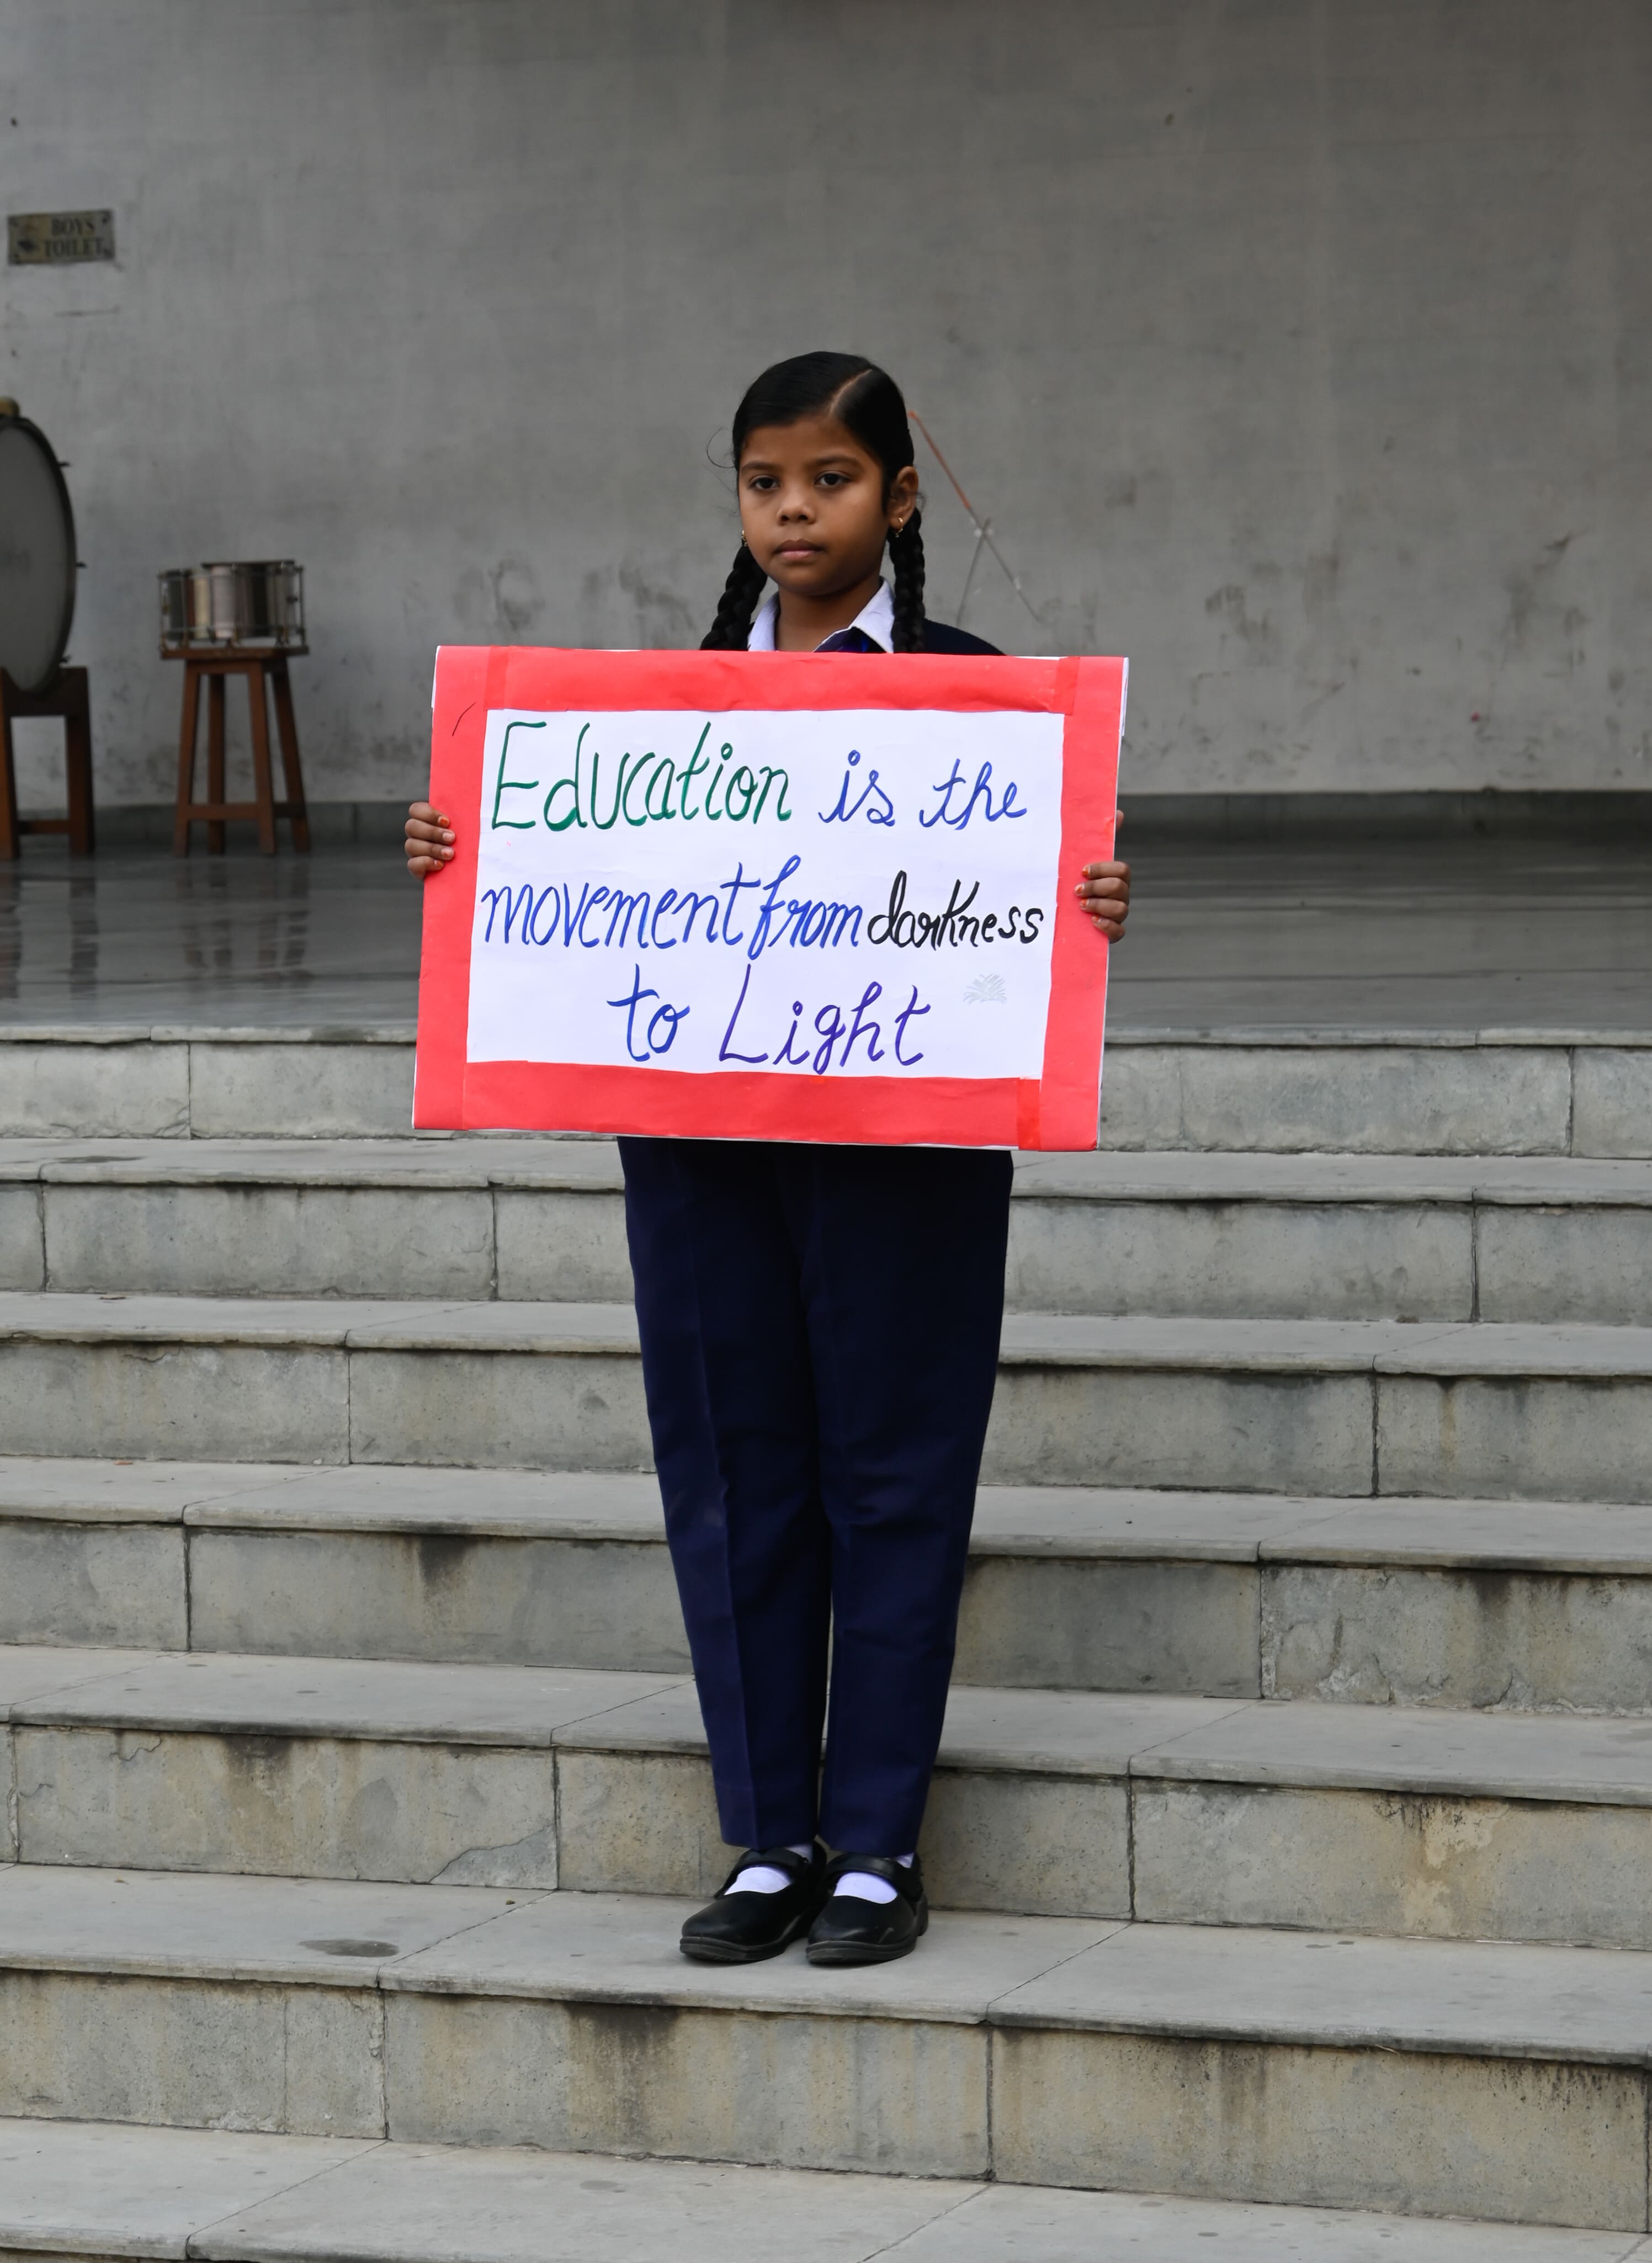 BOYS
TOILET
Education is the
movement from darkness
to Light